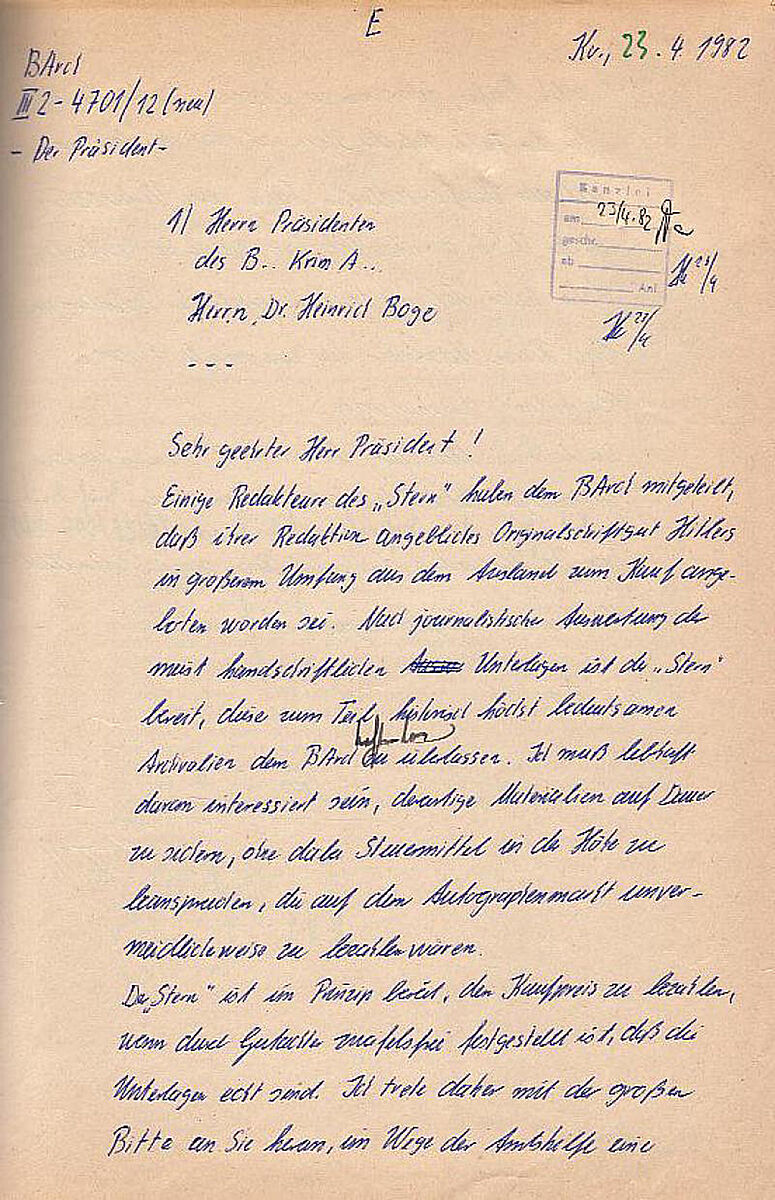 E
Kv., 23.4.1982
BArch
III 2 - 4701/12 (neu)
- Der Präsident -
Kanzlei
am 23/4.82
geschr.
ab
Anl
23/4
23/4
1) Herrn Präsidenten
des B.. Krim A..
Herrn, Dr. Heinrich Boge
- - -
Sehr geehrter Herr Präsident!
Einige Redakteure des „Stern" haben dem BArch mitgeteilt,
daß ihrer Redaktion angebliches Originalschriftgut Hitlers
in größerem Umfang aus dem Ausland zum Kauf ange-
boten worden sei. Nach journalistischer Auswertung der
meist handschriftlichen Unterlagen ist der „Stern"
bereit, diese zum Teil historisch höchst bedeutsamen
Archivalien dem BArch zu überlassen. Ich muß lebhaft
daran interessiert sein, derartige Materialien auf Dauer
zu sichern, ohne dabei Steuermittel in der Höhe zu
beanspruchen, die auf dem Autographenmarkt unver-
meidlicherweise zu bezahlen wären.
Der „Stern" ist im Prinzip bereit, den Kaufpreis zu bezahlen,
wenn durch Gutachter zweifelsfrei festgestellt ist, daß die
Unterlagen echt sind. Ich trete daher mit der großen
Bitte an Sie heran, im Wege der Amtshilfe eine